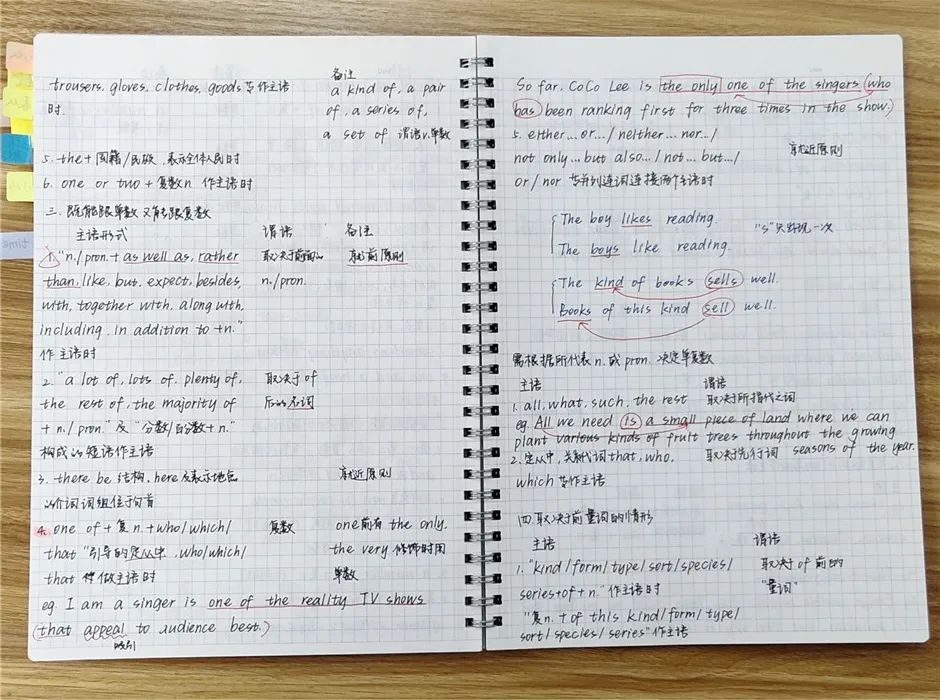 trousers, gloves, clothes, goods等作主语
时.
备注
a kind of, a pair
of, a series of,
a set of 谓语v.单数
5. the+国籍/民族，表示全体人民时
6. one or two + 复数n 作主语时
三. 既能跟单数又能跟复数
主语形式 谓语 备注
1. "n./pron. + as well as, rather 取决于前面的 就前原则
than, like, but, expect, besides, n./pron.
with, together with, along with,
including, in addition to +n."
作主语时
2. "a lot of, lots of, plenty of, 取决于of
the rest of, the majority of 后的名词
+ n./pron." 及 "分数/百分数+n."
构成的短语作主语
3. there be 结构, here及表示地点 就近原则
的介词词组位于句首
4. one of + 复n. + who/which/ 复数 one前有the only,
that "引导的定从中, who/which/ the very 修饰时用
that 作做主语时 单数
eg. I am a singer is one of the reality TV shows
(that appeal to audience best.)
吸引
So far, CoCo Lee is the only one of the singers (who
has been ranking first for three times in the show.)
5. either...or.../neither...nor.../
not only...but also.../not...but.../ 就近原则
or/nor 等并列连词连接两个主语时
The boy likes reading.
The boys like reading. "s"只出现一次
The kind of books sells well.
Books of this kind sell well.
需根据所代表n.或pron.决定单复数
主语 谓语
1. all, what, such, the rest 取决于所指代之词
eg. All we need is a small piece of land where we can
plant various kinds of fruit trees throughout the growing
seasons of the year.
2. 定从中, 关系代词that, who, 取决先行词
which 等作主语
四. 取决于前量词的情形
主语 谓语
1. "kind/form/type/sort/species/ 取决于of前的
series+of+n." 作主语时 "量词"
"复n.+of this kind/form/type/
sort/species/series"作主语